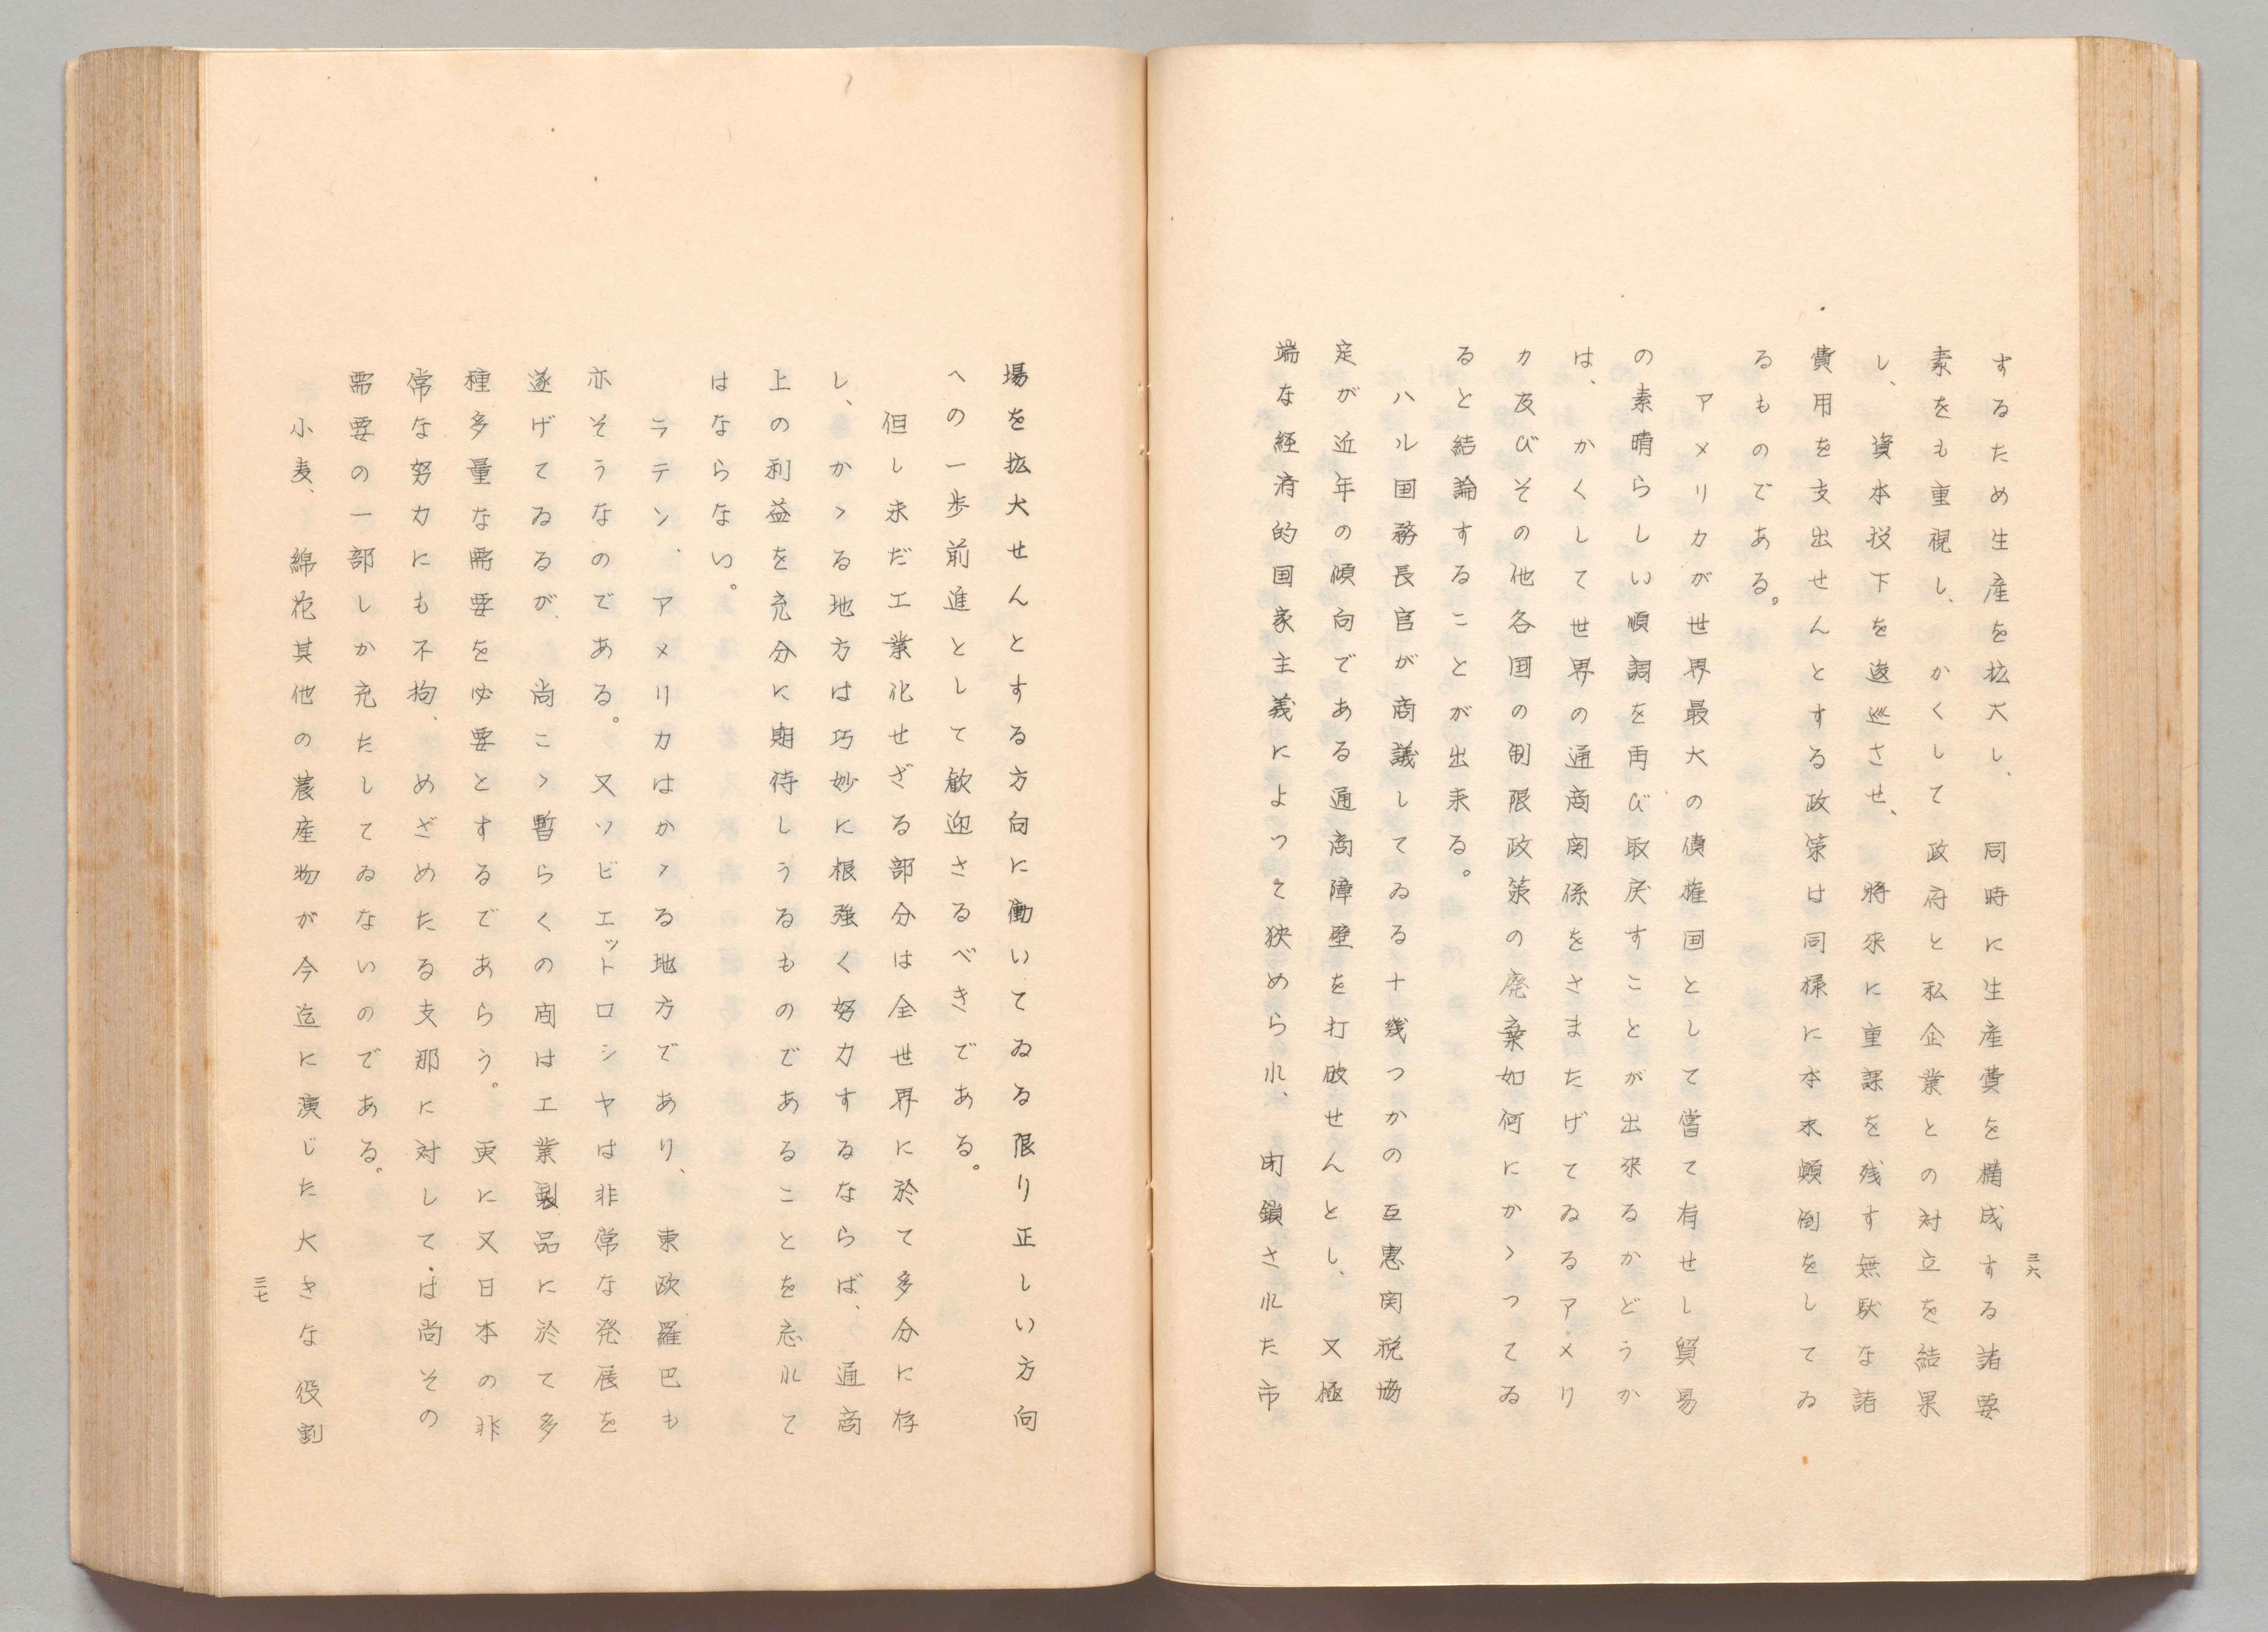 三六
するため生産を拡大し、同時に生産費を構成する諸要
素をも重視し、かくして政府と私企業との対立を結果
し、資本投下を逡巡させ、将来に重課を残す無駄な諸
費用を支出せんとする政策は同様に本末顛倒をしてゐ
るものである。
アメリカが世界最大の債権国として嘗て有せし貿易
の素晴らしい順調を再び取戻すことが出来るかどうか
は、かくして世界の通商関係をさまたげてゐるアメリ
カ及びその他各国の制限政策の廃棄如何にかゝつてゐ
ると結論することが出来る。
ハル国務長官が商議してゐる十幾つかの互恵関税協
定が近年の傾向である通商障壁を打破せんとし、又極
端な経済的国家主義によつて狭められ、閉鎖された市
場を拡大せんとする方向に働いてゐる限り正しい方向
への一歩前進として歓迎さるべきである。
但し未だ工業化せざる部分は全世界に於て多分に存
し、かゝる地方は巧妙に根強く努力するならば、通商
上の利益を充分に期待しうるものであることを忘れて
はならない。
ラテン、アメリカはかゝる地方であり、東欧羅巴も
亦そうなのである。又ソビエットロシヤは非常な発展を
遂げてゐるが、尚こゝ暫らくの間は工業製品に於て多
種多量な需要を必要とするであらう。更に又日本の非
常な努力にも不拘、めざめたる支那に対しては尚その
需要の一部しか充たしてゐないのである。
小麦、綿花其他の農産物が今迄に演じた大きな役割
三七